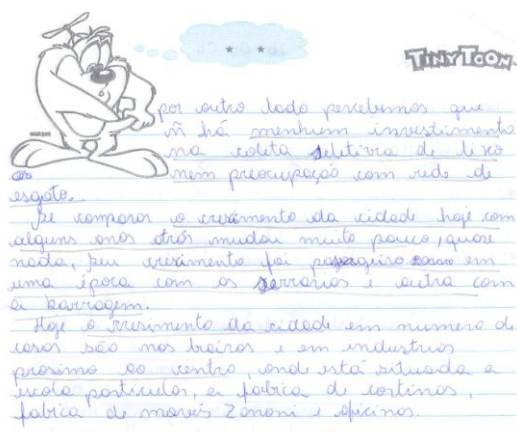 * *
TINY TOON
por outro lado percebemos que
ñ há nenhum investimento
na coleta seletiva de lixo
nem preocupação com rede de
esgoto.
Se comparar o cresimento da cidade hoje com
alguns anos atrás mudou muito pouco, quase
nada, seu cresimento foi passageiro em
uma época com as serrarias e outra com
a barragem.
Hoje o cresimento da cidade em numero de
casas são nos bairos e em industrias
prosimo ao centro, onde está situada a
escola particular, a fabrica de cortinas,
fabrica de moveis Zanoni e oficinas.